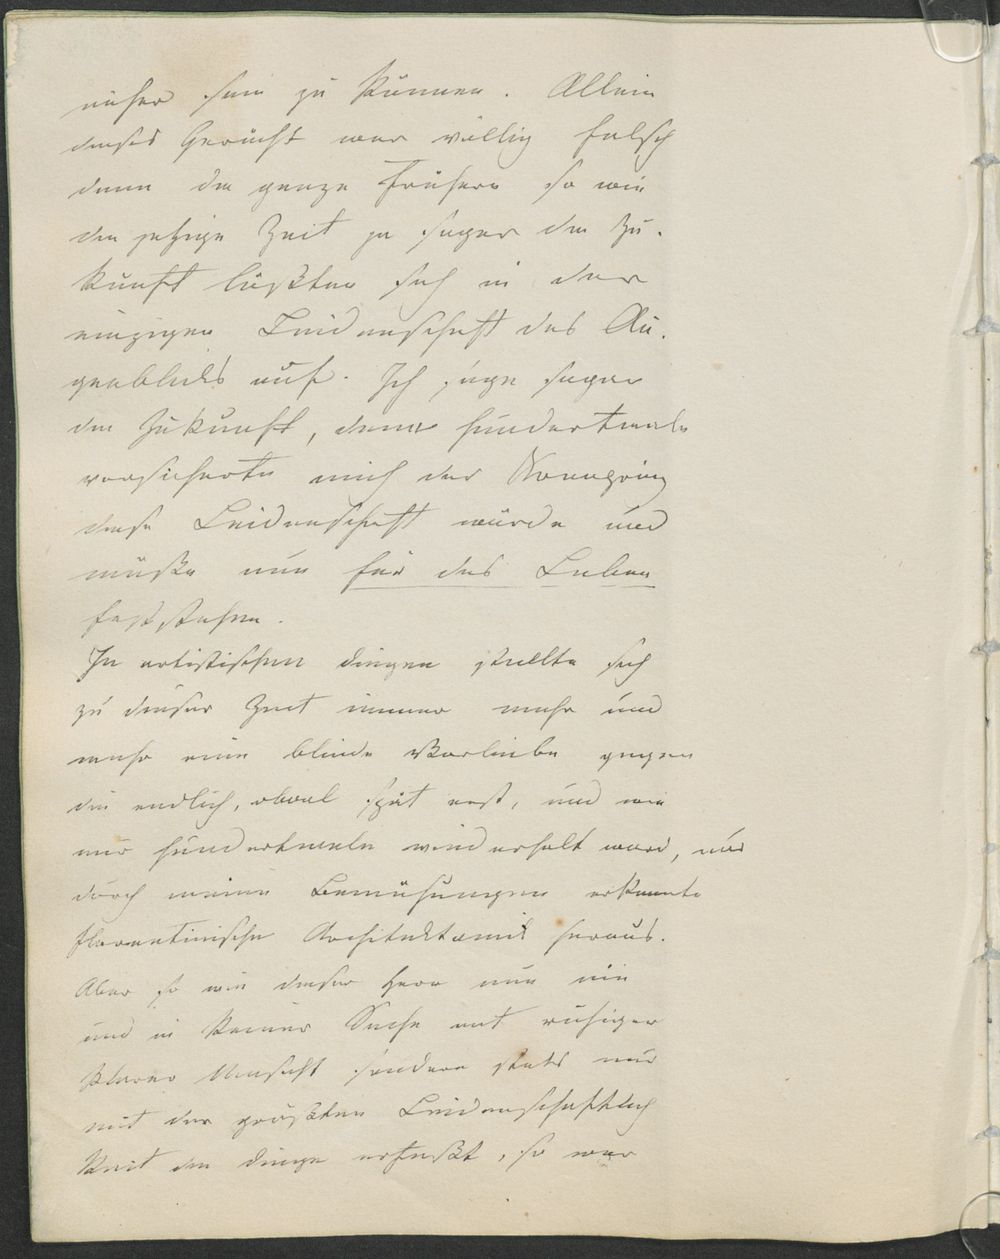 näher sein zu können. Allein
dieses Gerücht war völlig falsch
denn die ganze frühere so wie
die jetzige Zeit ja sogar die Zu-
kunft lößten sich in der
einzigen Leidenschaft des Au-
genblicks auf. Ich sage sogar
die Zukunft, denn hundertmale
versicherte mich der Kronprinz
diese Leidenschaft würde und
müße nun für das Leben
feststehen.
In artistischen Dingen stellte sich
zu dieser Zeit immer mehr und
mehr eine blinde Vorliebe gegen
die endlich, obwol spät erst, und wie
mir hundertmale wiederholt ward, nur
durch meine Bemühungen erkannte
florentinische Architektonik heraus.
Aber so wie dieser Herr nun nie
und in keiner Sache mit ruhiger
klarer Umsicht sondern stets nur
mit der größten Leidenschaftlich
keit die Dinge erfaßt, so war